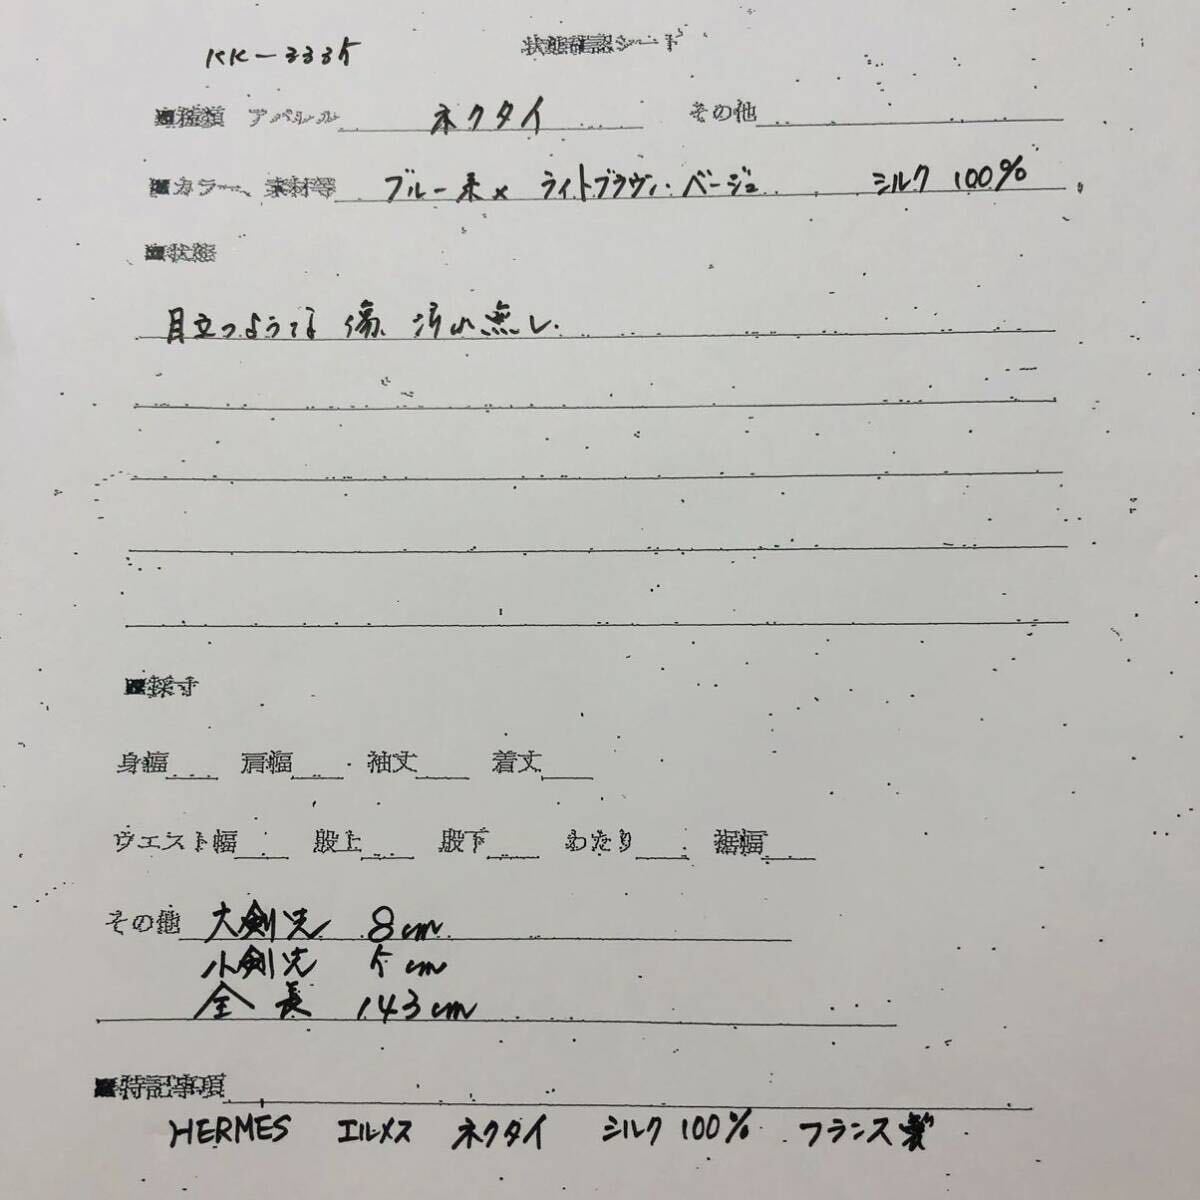 状態確認シート
KK-3335
■種類 アパレル ネクタイ その他
■カラー、素材等 ブルー系× ライトブラウン・ベージュ シルク 100%
■状態
目立つような 傷、汚れ無し.
■採寸
身幅 肩幅 袖丈 着丈
ウエスト幅 股上 股下 わたり 裾幅
その他 大剣先 8cm
小剣先 5cm
全長 143cm
■特記事項
HERMES エルメス ネクタイ シルク 100% フランス製